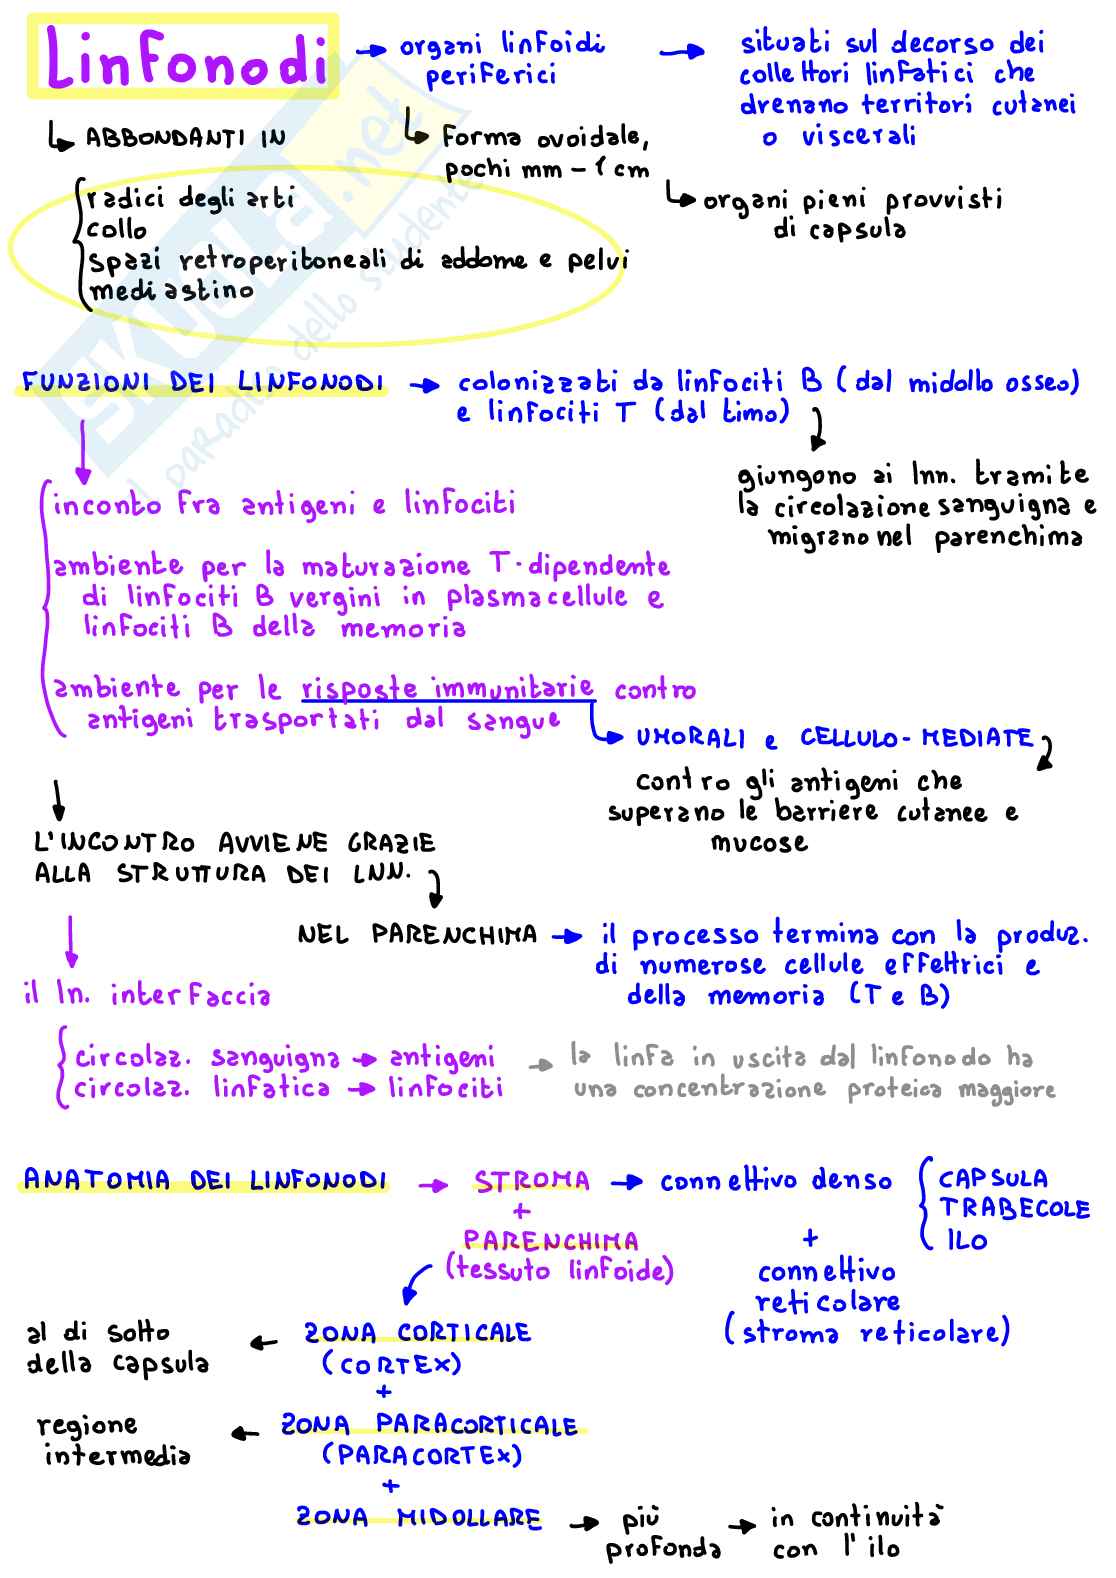 Linfonodi → organi linfoidi periferici → situati sul decorso dei
collettori linfatici che
drenano territori cutanei
o viscerali
↳ ABBONDANTI IN
↳ Forma ovoidale,
pochi mm - 1 cm
↳ organi pieni provvisti
di capsula
radici degli arti
collo
spazi retroperitoneali di addome e pelvi
mediastino
SKUOLA.net
il paradiso dello studente
FUNZIONI DEI LINFONODI → colonizzati da linfociti B (dal midollo osseo)
e linfociti T (dal timo)
giungono ai lnn. tramite
la circolazione sanguigna e
migrano nel parenchima
inconto fra antigeni e linfociti
ambiente per la maturazione T-dipendente
di linfociti B vergini in plasmacellule e
linfociti B della memoria
ambiente per le risposte immunitarie contro
antigeni trasportati dal sangue
UMORALI e CELLULO-MEDIATE
contro gli antigeni che
superano le barriere cutanee e
mucose
L'INCONTRO AVVIENE GRAZIE
ALLA STRUTTURA DEI LNN.
NEL PARENCHIMA → il processo termina con la produz.
di numerose cellule effettrici e
della memoria (T e B)
il ln. interfaccia
circolaz. sanguigna → antigeni
circolaz. linfatica → linfociti
→ la linfa in uscita dal linfonodo ha
una concentrazione proteica maggiore
ANATOMIA DEI LINFONODI → STROMA → connettivo denso
CAPSULA
TRABECOLE
ILO
+
PARENCHIMA
(tessuto linfoide)
+
connettivo
reticolare
(stroma reticolare)
al di sotto
della capsula
← ZONA CORTICALE
(CORTEX)
+
regione
intermedia
← ZONA PARACORTICALE
(PARACORTEX)
+
ZONA MIDOLLARE → più
profonda → in continuità
con l'ilo